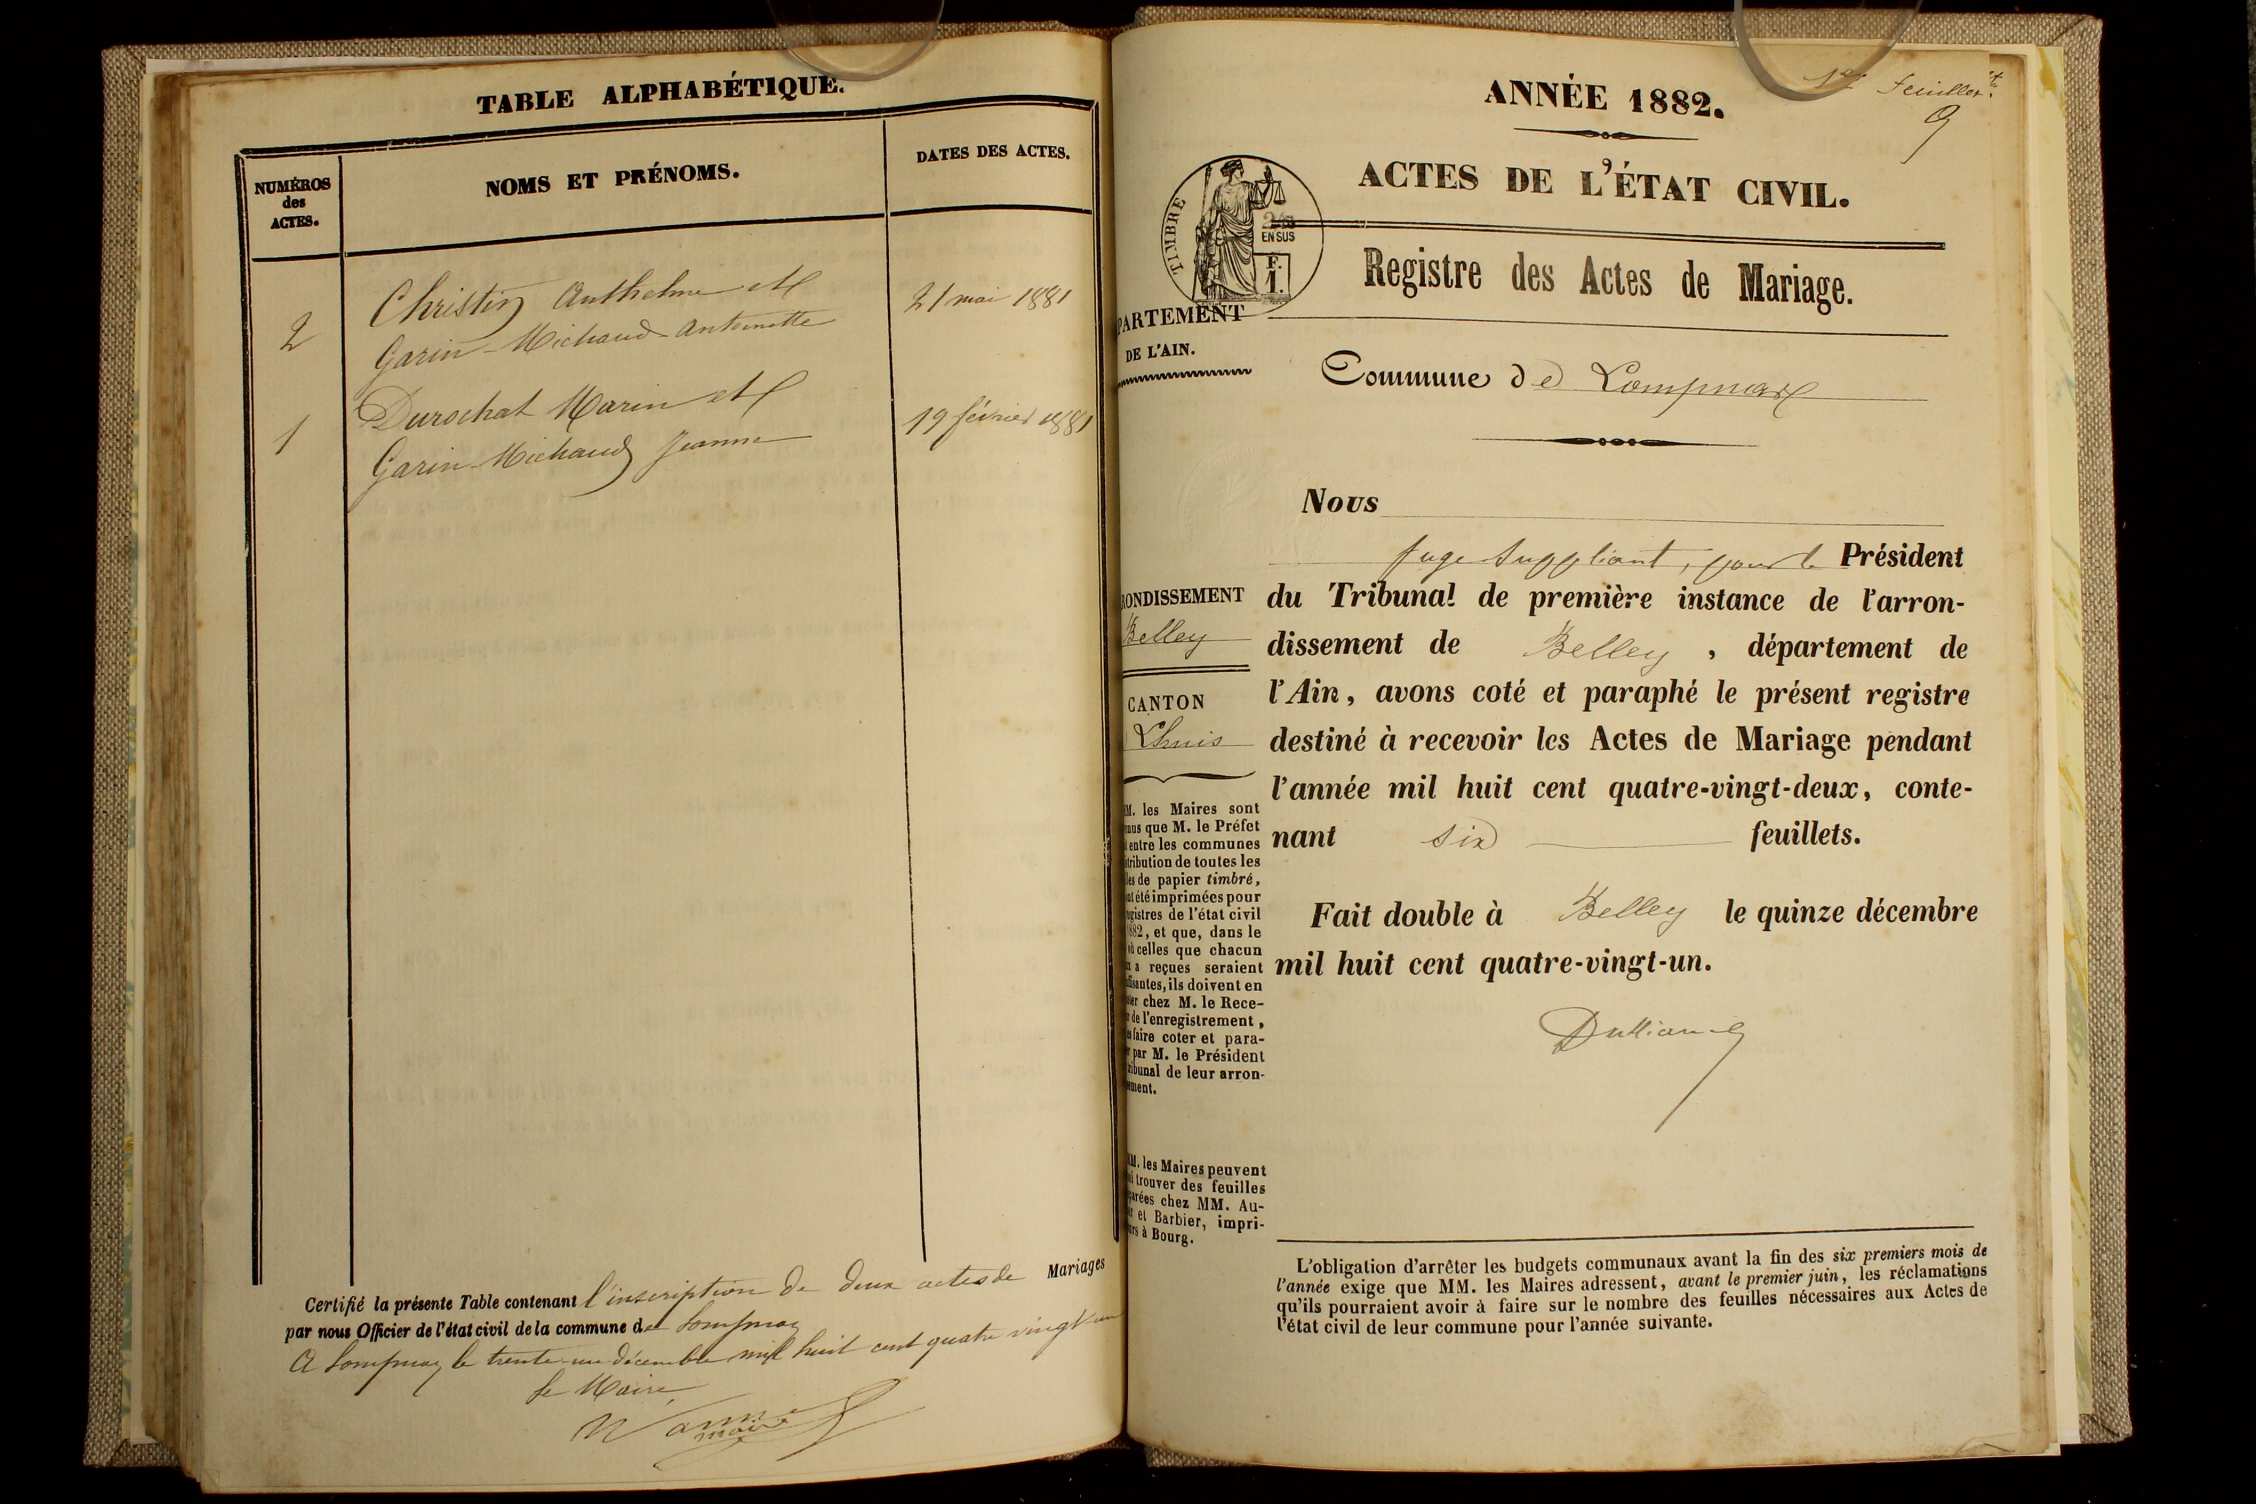 TABLE ALPHABÉTIQUE.
NUMÉROS
des
ACTES.
NOMS ET PRÉNOMS.
DATES DES ACTES.
2
Christin Anthelme et
Garin-Michaud Antoinette
21 mai 1881
1
Durochat Marin et
Garin-Michaud Jeanne
19 février 1881
Certifié la présente Table contenant l'inscription de deux actes de Mariages
par nous Officier de l'état civil de la commune de Lompnaz
A Lompnaz le trente-un décembre mil huit cent quatre vingt un
Le Maire,
maire
1er feuillet.
9
ANNÉE 1882.
ACTES DE L'ÉTAT CIVIL.
TIMBRE
EN SUS
F.
1.
Registre des Actes de Mariage.
PARTEMENT
DE L'AIN.
Commune de Lompnaz
Nous
Juge Suppléant, pour le Président
du Tribunal de première instance de l'arron-
dissement de Belley, département de
l'Ain, avons coté et paraphé le présent registre
destiné à recevoir les Actes de Mariage pendant
l'année mil huit cent quatre-vingt-deux, conte-
nant six feuillets.
Fait double à Belley le quinze décembre
mil huit cent quatre-vingt-un.
RONDISSEMENT
Belley
CANTON
Lhuis
M. les Maires sont
nus que M. le Préfet
entre les communes
tribution de toutes les
les de papier timbré,
nt été imprimées pour
gistres de l'état civil
882, et que, dans le
ù celles que chacun
a reçues seraient
ffisantes, ils doivent en
ter chez M. le Rece-
r de l'enregistrement,
es faire coter et para-
r par M. le Président
ribunal de leur arron-
ement.
M. les Maires peuvent
i trouver des feuilles
parées chez MM. Au-
r et Barbier, impri-
urs à Bourg.
L'obligation d'arrêter les budgets communaux avant la fin des six premiers mois de
l'année exige que MM. les Maires adressent, avant le premier juin, les réclamations
qu'ils pourraient avoir à faire sur le nombre des feuilles nécessaires aux Actes de
l'état civil de leur commune pour l'année suivante.